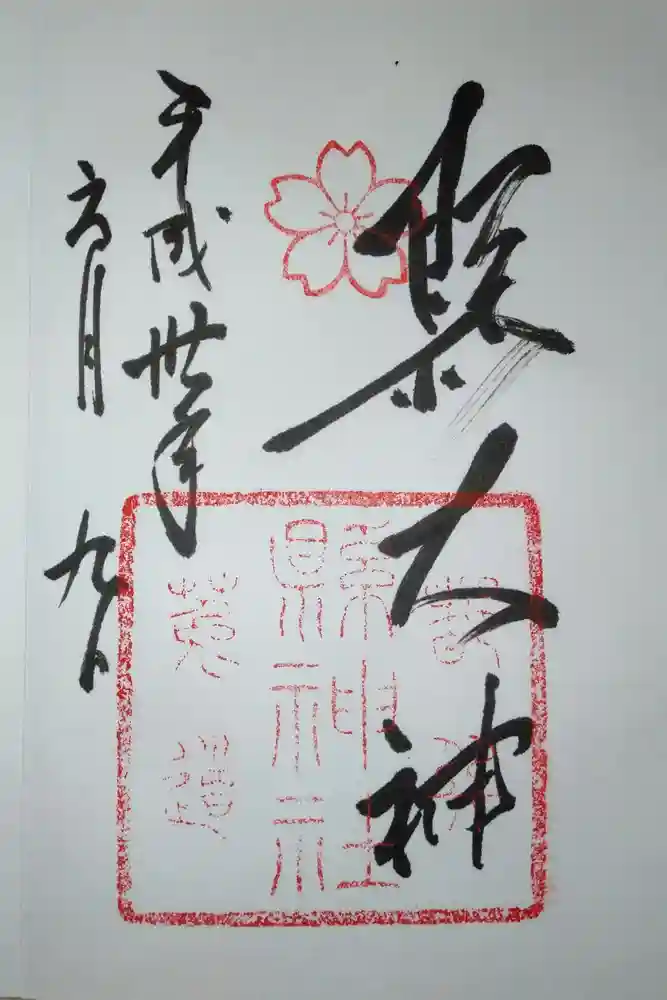 縣大神
縣神社
平成丗年
六月九日